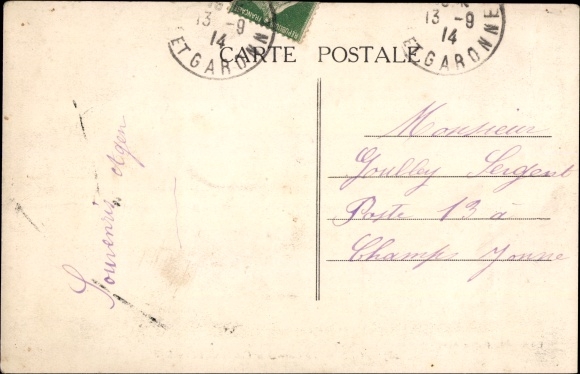 13 -9
14
ET GARONNE
13 -9
14
ET GARONNE
CARTE POSTALE
Souvenir Agen
Monsieur
Sergent
Poste 13 à
Champs Yonne